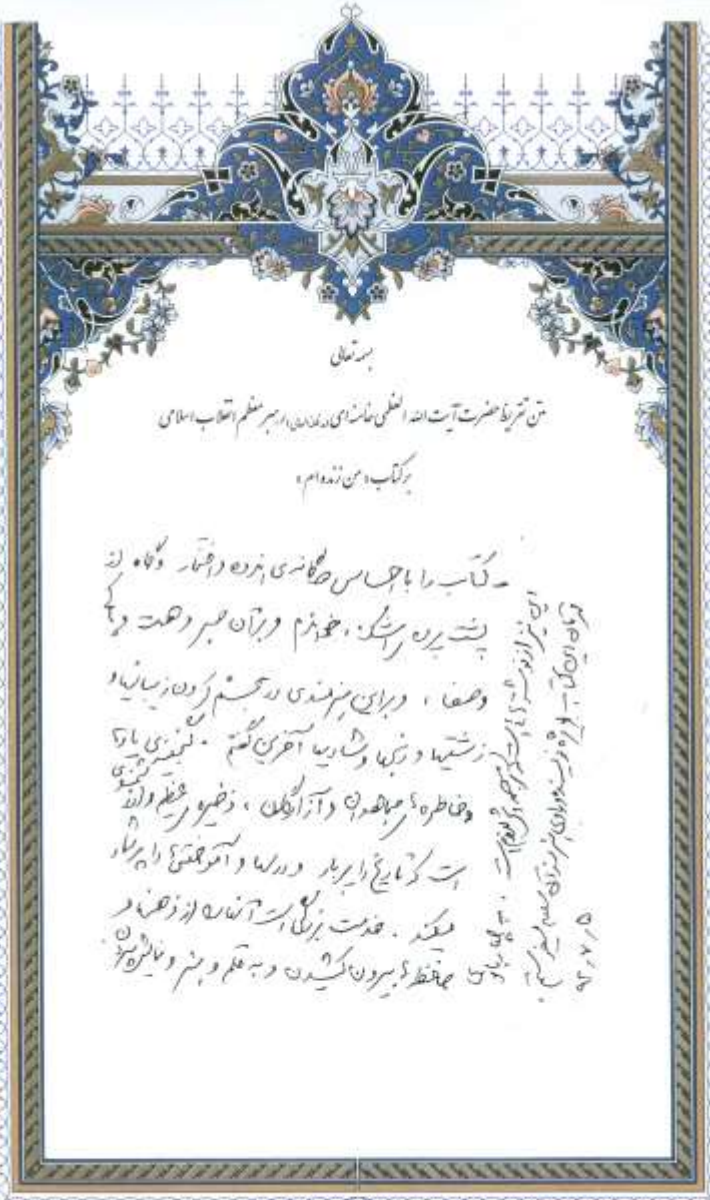 بسمه تعالی
متن تقریظ حضرت آیت الله العظمی خامنه‌ای (مد ظله العالی) رهبر معظم انقلاب اسلامی
بر کتاب «من زنده‌ام»
کتاب را با احساس دوگانه‌ی اندوه و افتخار و گاه از
پشت پرده‌ی اشک، خواندم و بر آن صبر و همت و پاکی
و صفا، و بر این هنرمندی در مجسم کردن زیبائیها و
زشتیها و رنجها و شادیها آفرین گفتم. گنجینه‌ی یادها
و خاطره‌های مجاهدان و آزادگان، ذخیره‌ی عظیم و ارزشمندی
است که تاریخ را پربار و درسها و آموختنی‌ها را پرشمار
میکند. خدمت بزرگی است آنها را از ذهنها و
حافظه‌ها بیرون کشیدن و به قلم و هنر و نمایش سپردن.
این نیز از نوشته‌هائی است که ترجمه‌اش لازم است. به چهار بانوی
قهرمان این کتاب بویژه نویسنده و راوی هنرمند آن سلام میفرستم.
۹۲/۷/۵